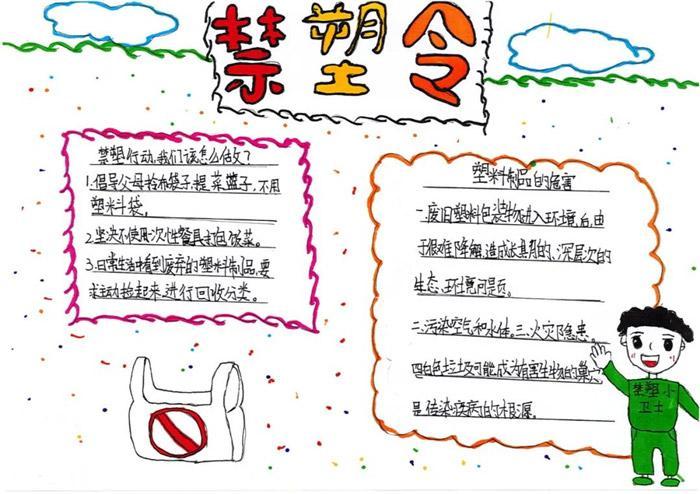 禁塑令
禁塑行动,我们该怎么做?
1.倡导父母拎布袋子,提菜篮子,不用
塑料斗袋。
2.坚决不使用一次性餐具打包饭菜。
3.日常生活中看到废弃的塑料制品,要
主动捡起来,进行回收分类。
塑料制品的危害
一.废旧塑料包装物进入环境后,由
于很难降解,造成长期的、深层次的
生态环境问题。
二.污染空气和水体。三.火灾隐患。
四.白色垃圾可能成为有害生物的巢穴
是传染疾病的根源。
禁塑小
卫士